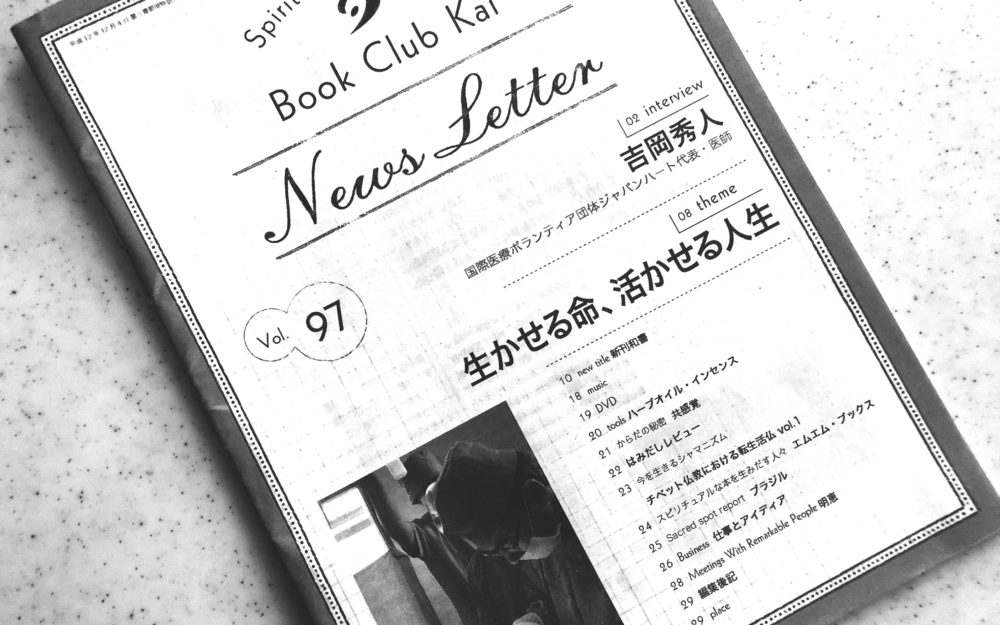 Spirit
Book Club Kai
News Letter
Vol. 97
02 interview
吉岡秀人
国際医療ボランティア団体ジャパンハート代表・医師
08 theme
生かせる命、活かせる人生
10 new title 新刊和書
18 music
19 DVD
20 tools ハーブオイル・インセンス
21 からだの秘密 共感覚
22 はみだしレビュー
23 今を生きるシャマニズム
チベット仏教における転生活仏 vol.1
24 スピリチュアルな本を生みだす人々 エムエム・ブックス
25 Sacred spot report ブラジル
26 Business 仕事とアイディア
28 Meetings With Remarkable People 明恵
29 編集後記
29 place